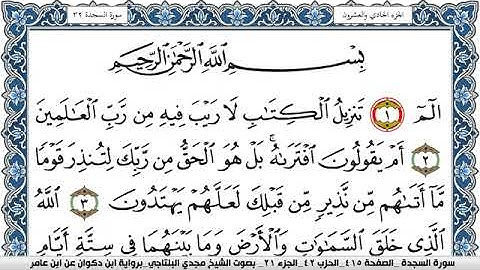 الجزء الحادي والعشرون
سورة السجدة ٣٢
بِسْمِ اللَّهِ الرَّحْمَٰنِ الرَّحِيمِ
الٓمٓ ١ تَنزِيلُ الْكِتَابِ لَا رَيْبَ فِيهِ مِن رَّبِّ الْعَالَمِينَ
٢ أَمْ يَقُولُونَ افْتَرَىٰهُ ۚ بَلْ هُوَ الْحَقُّ مِن رَّبِّكَ لِتُنذِرَ قَوْمًا
مَّا أَتَىٰهُم مِّن نَّذِيرٍ مِّن قَبْلِكَ لَعَلَّهُمْ يَهْتَدُونَ ٣ اللَّهُ
الَّذِي خَلَقَ السَّمَٰوَٰتِ وَالْأَرْضَ وَمَا بَيْنَهُمَا فِي سِتَّةِ أَيَّامٍ
سورة السجدة _ الصفحة ٤١٥_ الحزب ٤٢_ الجزء ٢١_ بصوت الشيخ مجدي البلتاجي_ برواية ابن ذكوان عن ابن عامر